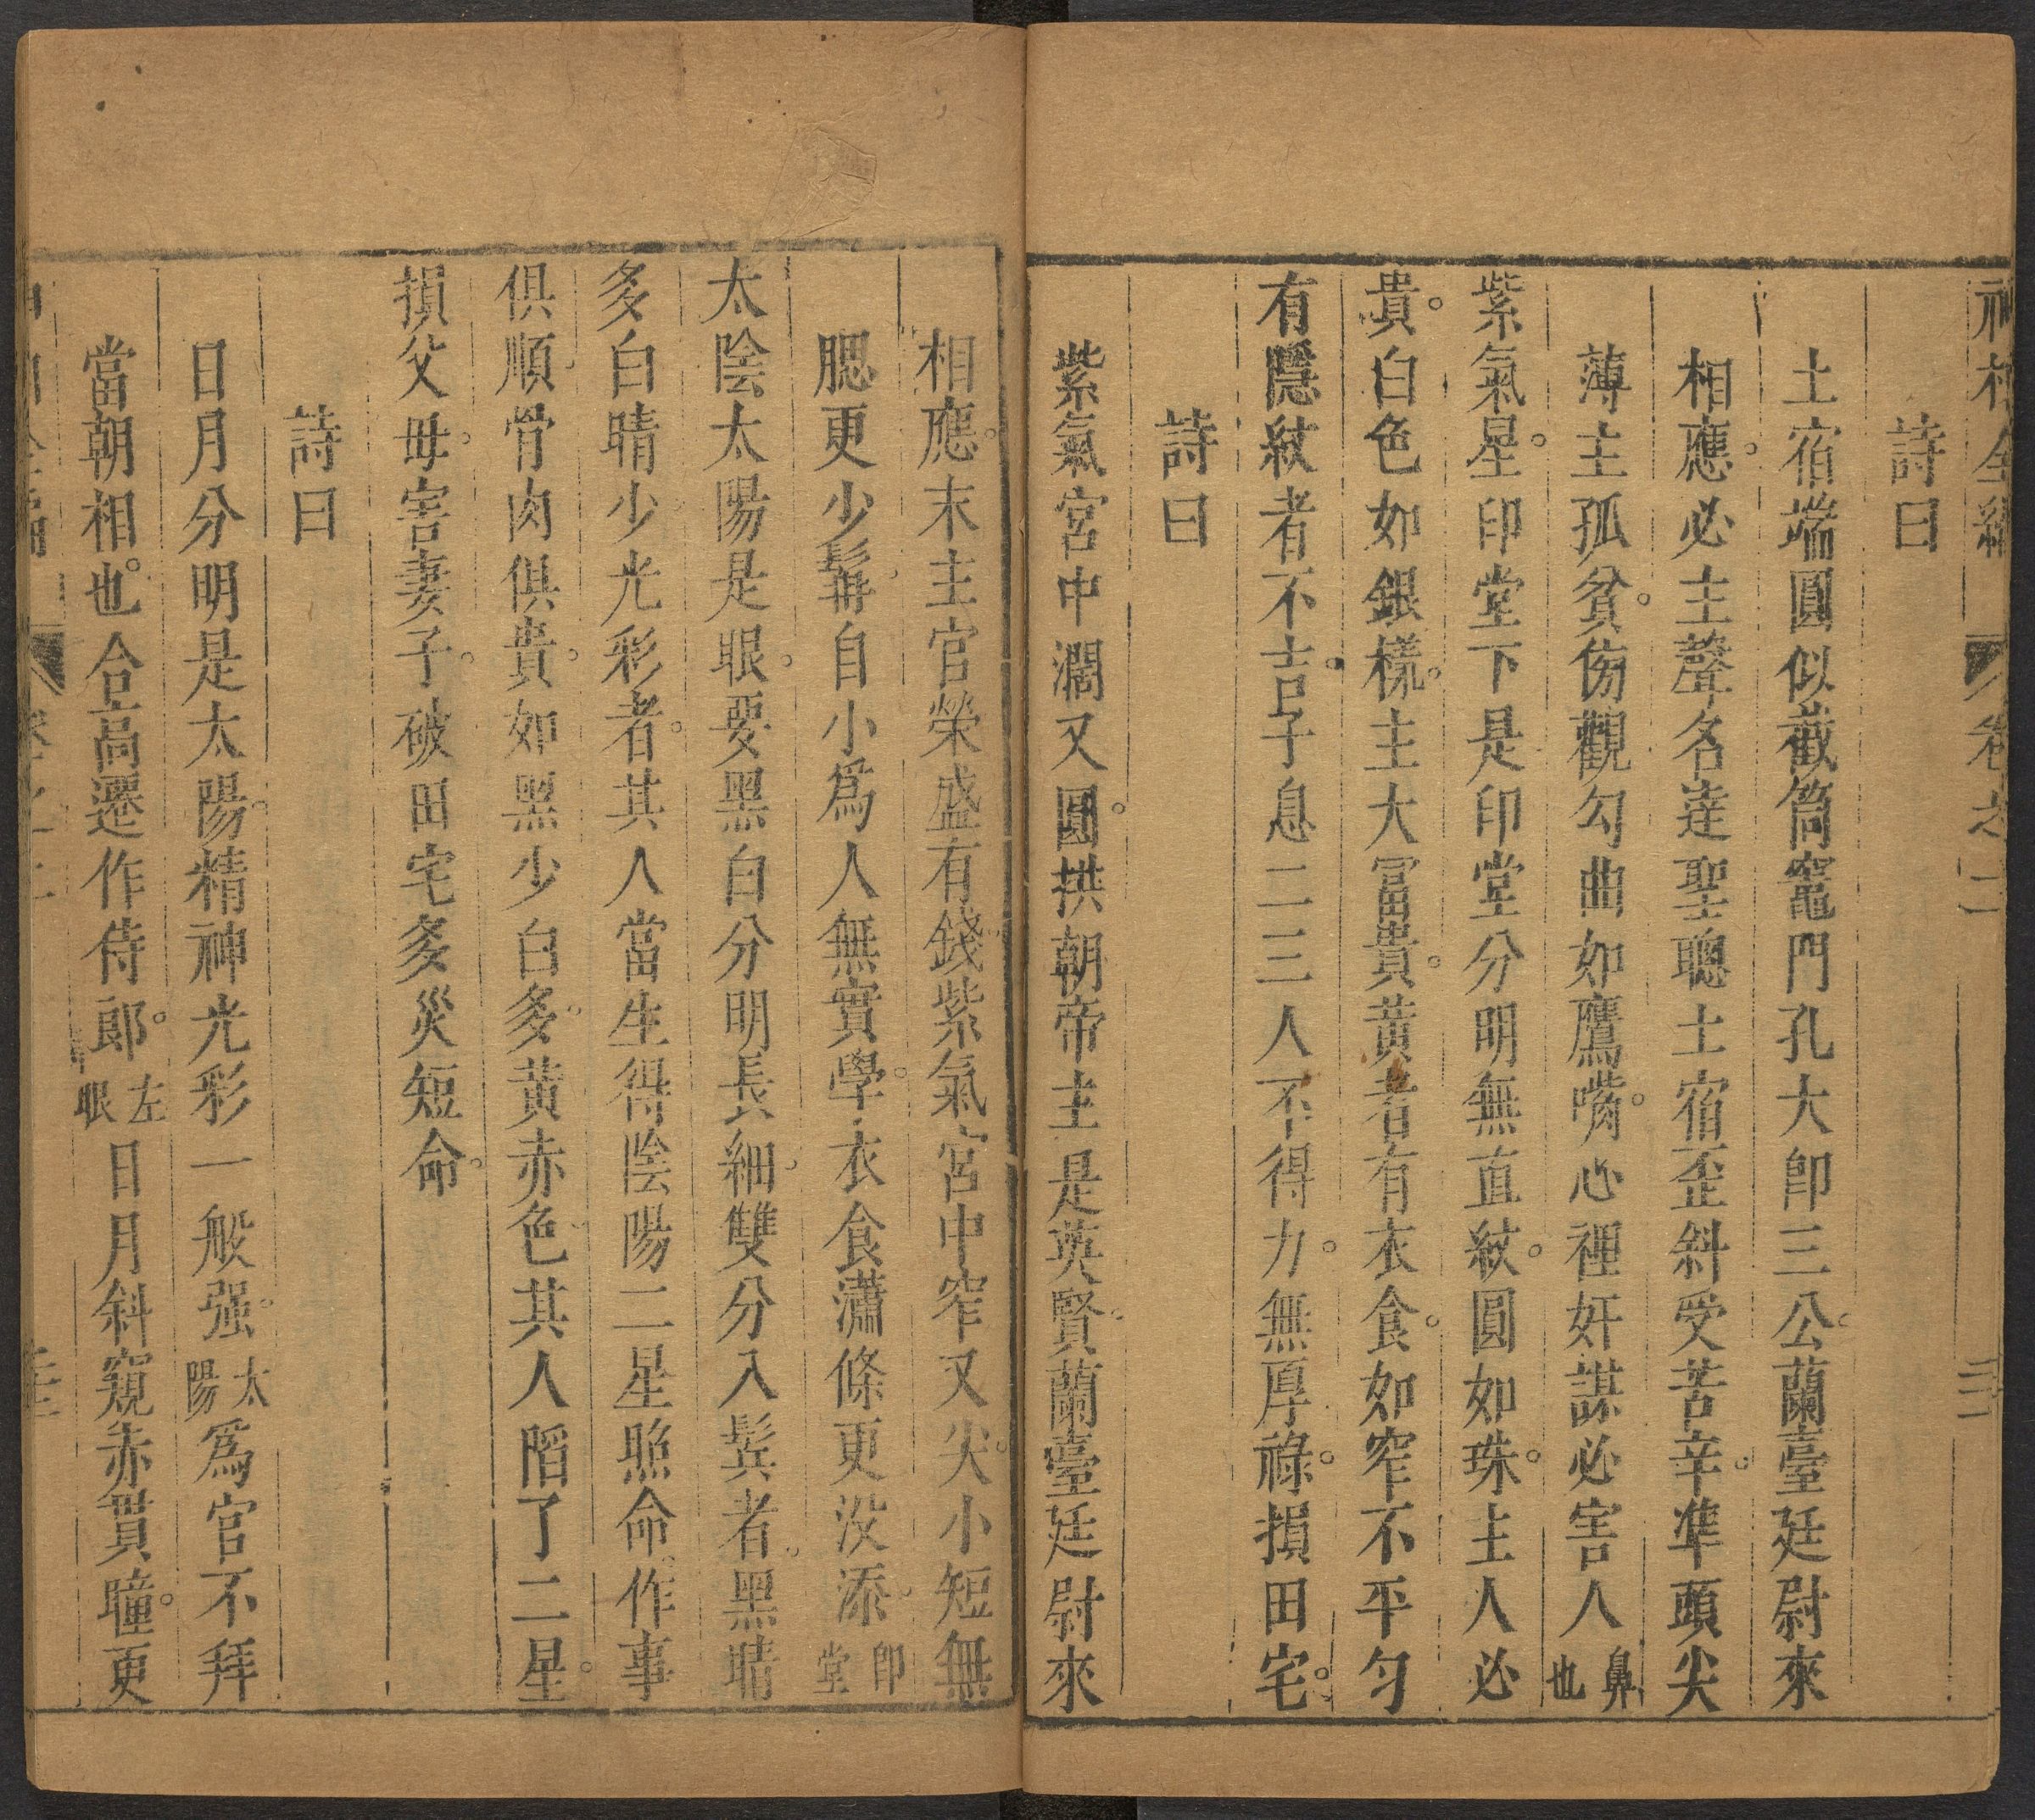 神相全編 卷之二 三
詩曰
土宿端圓似截筒竈門孔大卽三公蘭臺廷尉來
相應必主聲名達聖聰土宿歪斜受苦辛準頭尖
薄主孤貧傍觀勾曲如鷹嘴心裡奸謀必害人鼻也
紫氣星印堂下是印堂分明無直紋圓如珠主人必
貴白色如銀樣主大富貴黃者有衣食如窄不平勻
有隱紋者不吉子息二三人不得力無厚祿損田宅
詩曰
紫氣宮中濶又圓拱朝帝主是英賢蘭臺廷尉來
相應末主官榮盛有錢紫氣宮中窄又尖小短無
腮更少髯自小爲人無實學衣食瀟條更没添印堂
太陰太陽是眼要黑白分明長細雙分入鬂者黑睛
多白睛少光彩者其人當生得陰陽二星照命作事
俱順骨肉俱貴如黑少白多黃赤色其人陷了二星
損父母害妻子破田宅多災短命
詩曰
日月分明是太陽精神光彩一般强太陽爲官不拜
當朝相也合高遷作侍郎左眼日月斜窺赤貫瞳更